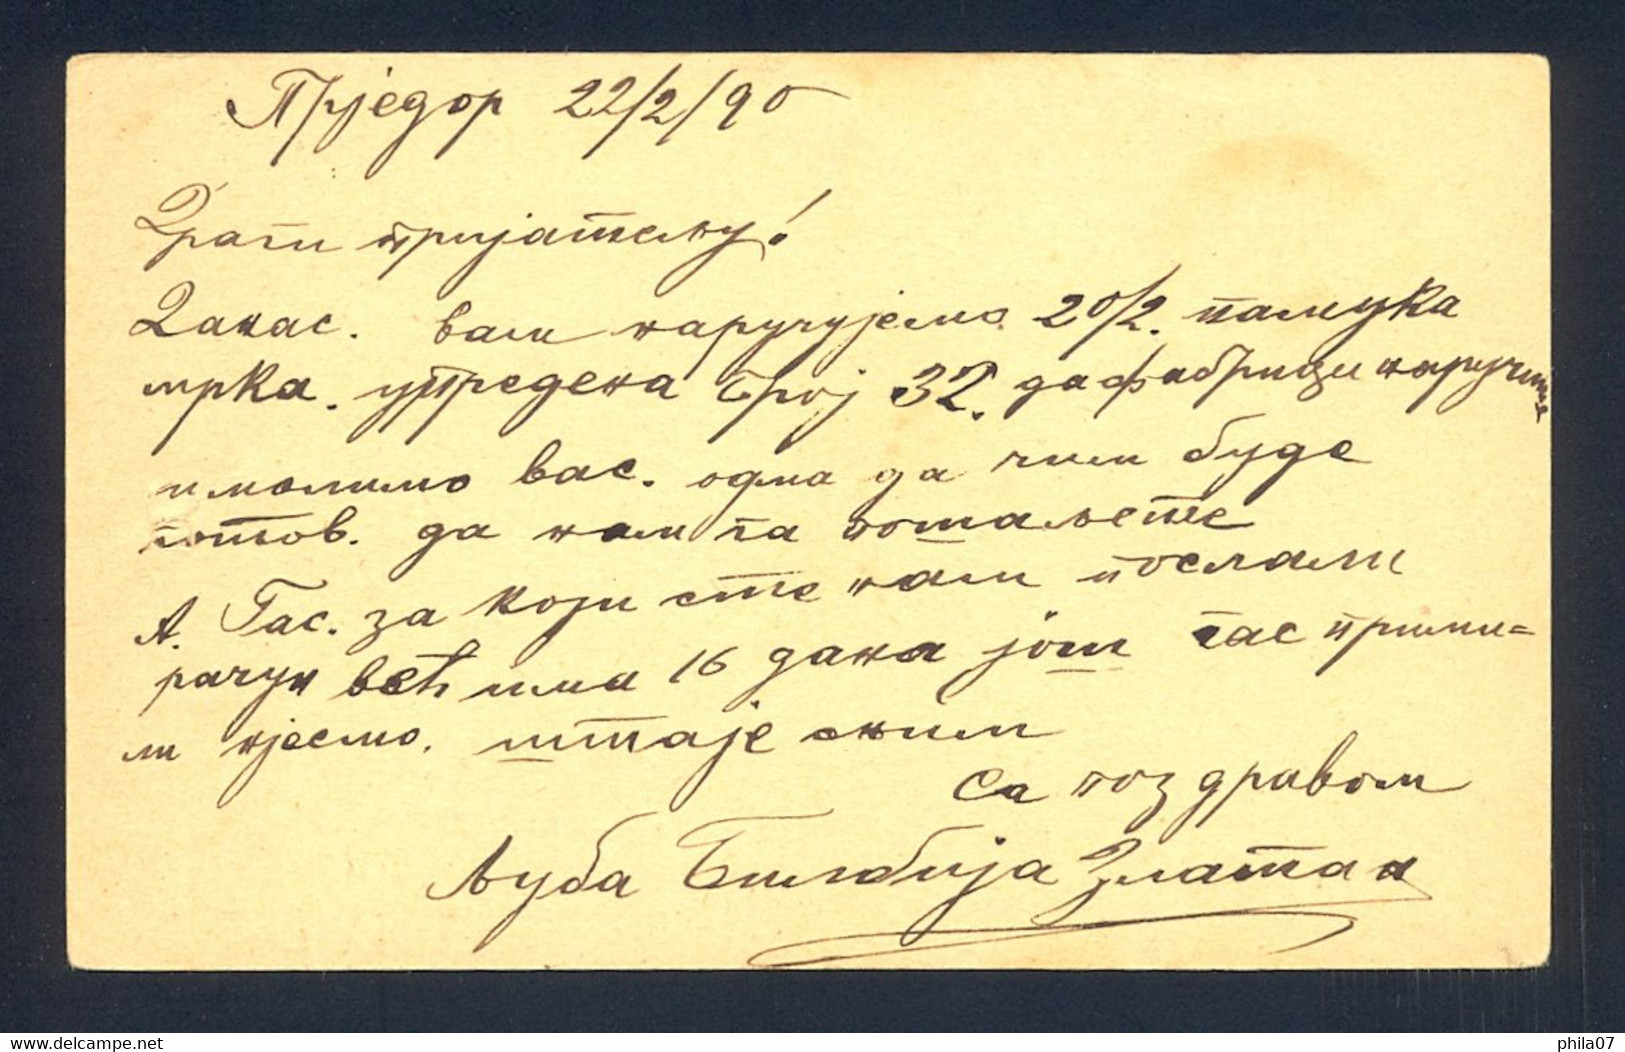 Прједор 22/2/90
Драги пријатељу!
Данас. вам наручујемо 20/2. памука
мрка. упредена број 32. да фабрици наручите
и молимо вас. одма да чим буде
готов. да нам га
А. Гас. за који сте нам послали
рачун већ има 16 дана још гас прими=
ли нјесмо. шта је шним
Са поздравом
Љуба Билбија Златан
www.delcampe.net
phila07